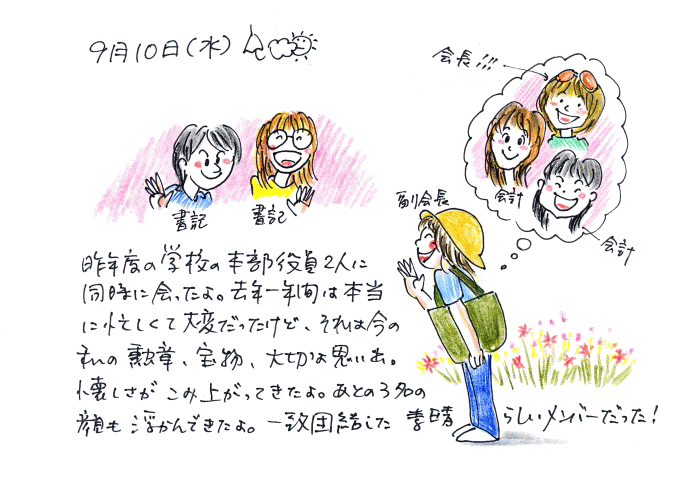 9月10日(水)
会長!!!
書記
書記
会計
会計
副会長
昨年度の学校の本部役員2人に
同時に会ったよ。去年一年間は本当
に忙しくて大変だったけど、それは今の
私の勲章、宝物、大切な思い出。
懐しさがこみ上がってきたよ。あとの3名の
顔も浮かんできたよ。一致団結した素晴らしいメンバーだった!